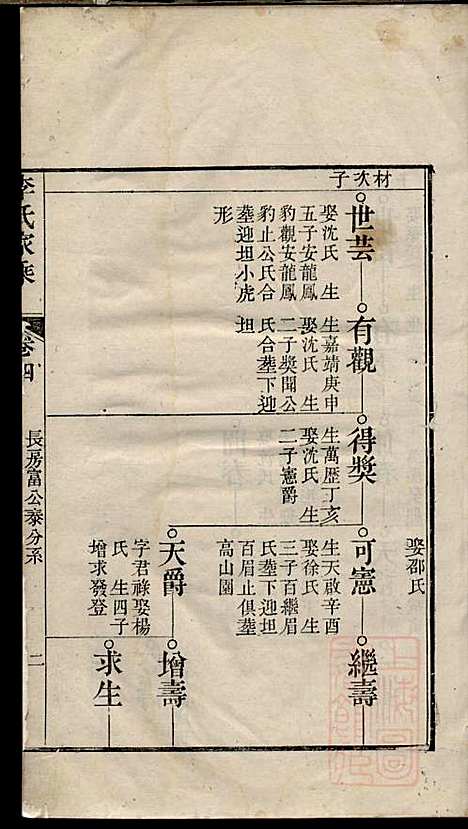 材次子
世芸
娶沈氏 生
五子安龍鳳
豹觀安龍鳳
豹止公氏合
塟迎坦小虎
形
有觀
生嘉靖庚申
娶沈氏 生
二子獎聞公
氏合塟下迎
坦
得獎
生萬歷丁亥
娶沈氏 生
二子憲爵
娶邵氏
可憲
生天啟辛酉
娶徐氏 生
三子百繼眉
氏塟下迎坦
百眉止俱塟
高山園
繼壽
天爵
字君祿娶楊
氏 生四子
增求發登
增壽
求生
李氏家乘
卷四
長房富公泰分系
二